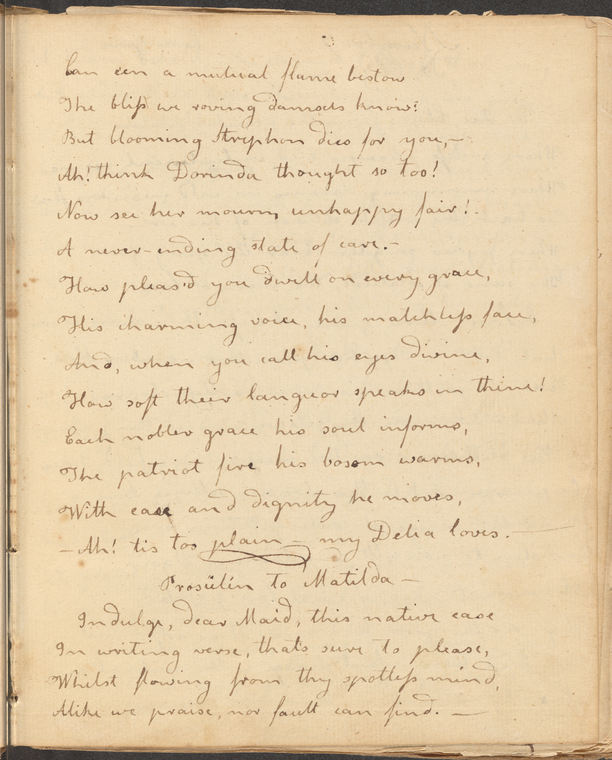 Can een a mutual flame bestow
The bliss we roving damsels know?
But blooming Strephon dies for you,—
Ah! think Dorinda thought so too!
Now see her mourn, unhappy fair!
A never-ending state of care.—
How pleas'd you dwell on every grace,
His charming voice, his matchless face,
And, when you call his eyes divine,
How soft their languor speaks in thine!
Each nobler grace his soul informs,
The patriot fire his bosom warms,
With ease and dignity he moves,
—Ah! tis too plain—my Delia loves.—
Prosülin to Matilda—
Indulge, dear Maid, this native ease
In writing verse, that's sure to please,
Whilst flowing from thy spotless mind,
Alike we praise, nor fault can find.—